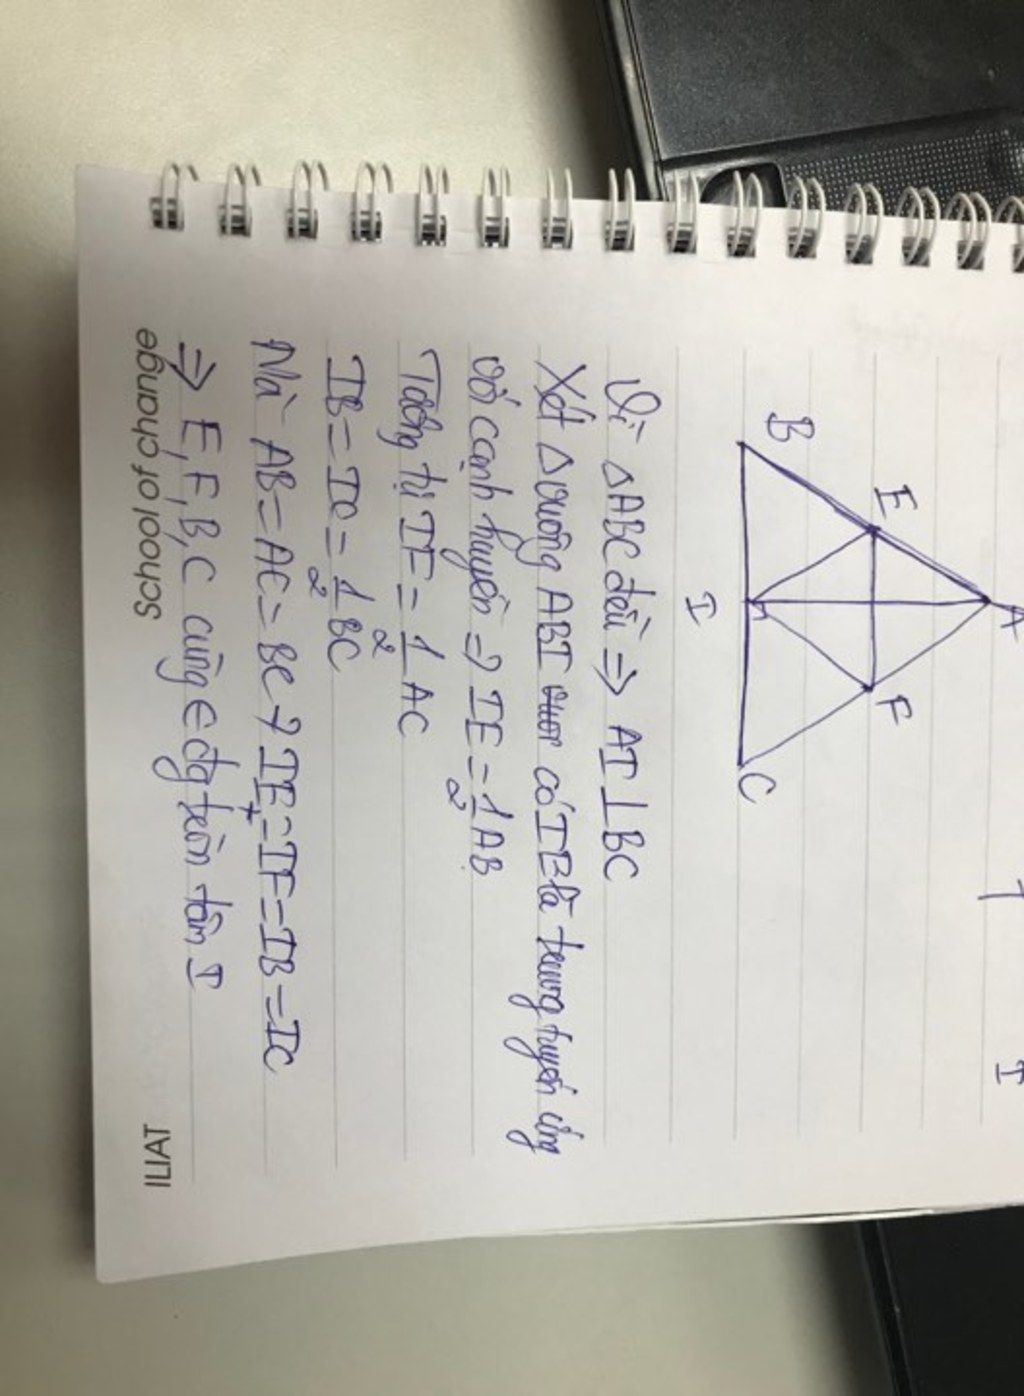 A
E
F
B
I
C
T
I
Vì ΔABC đều => AI ⊥ BC
Xét Δ vuông ABI có IE là trung tuyến ứng
với cạnh huyền => IE = 1/2 AB
Tương tự IF = 1/2 AC
IB = IC = 1/2 BC
Mà AB = AC = BC => IE = IF = IB = IC
=> E, F, B, C cùng ∈ đg tròn tâm I
School of change
ILIAT